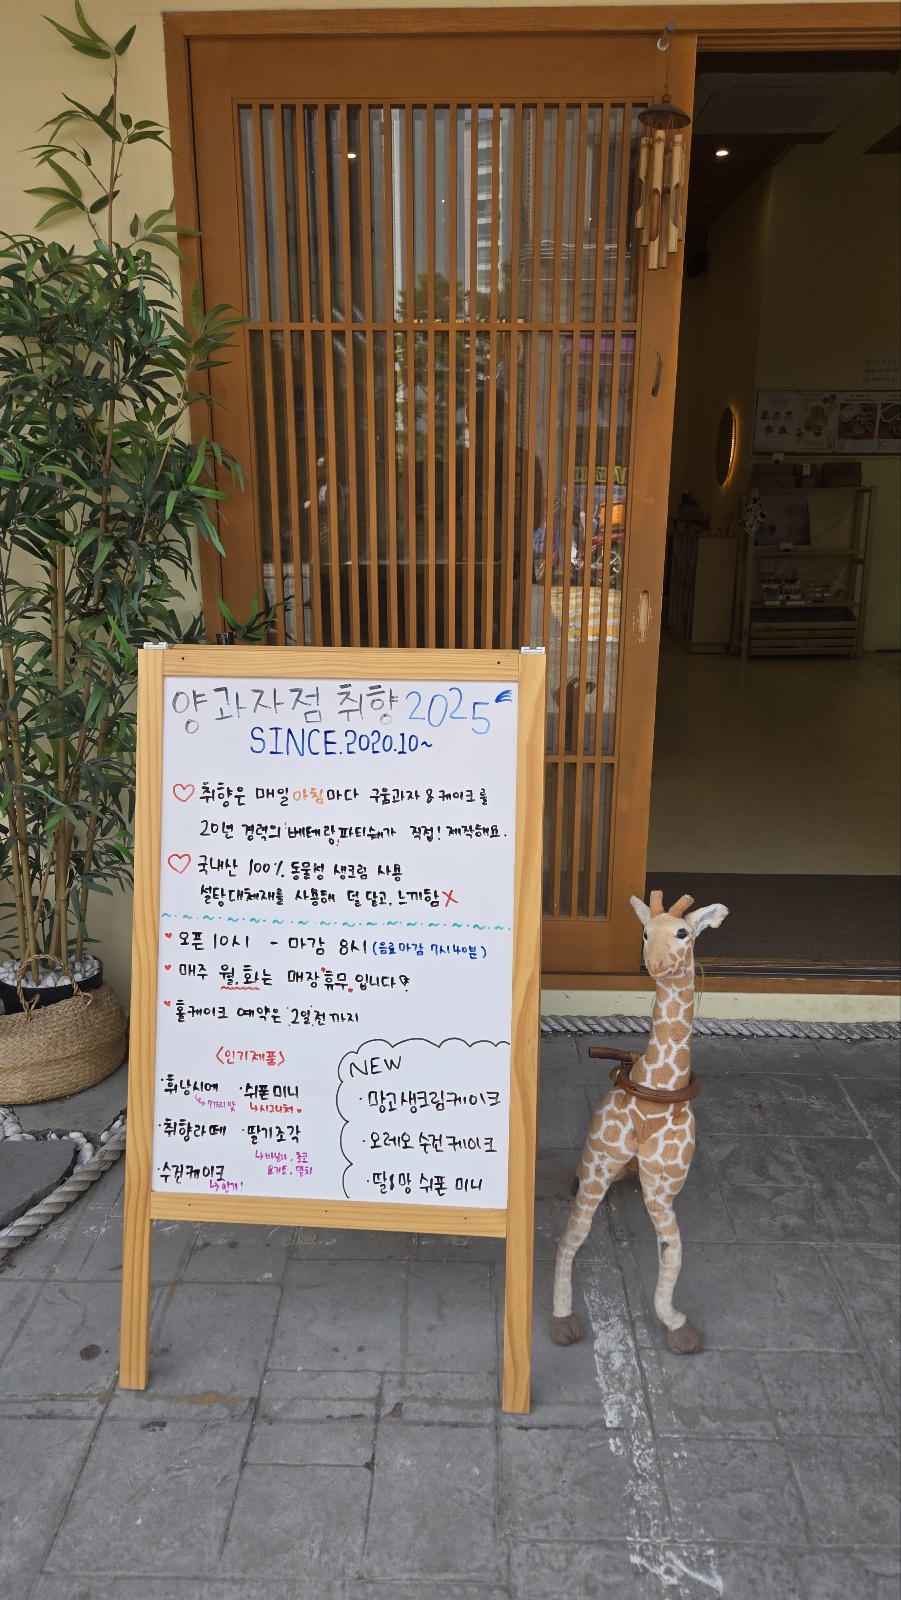 양과자점 취향 2025
SINCE.2020.10~
♡ 취향은 매일 아침마다 구움과자 & 케이크를
20년 경력의 베테랑 파티쉐가 직접! 제작해요.
♡ 국내산 100% 동물성 생크림 사용
설탕대체재를 사용해 덜 달고, 느끼함 X
오픈 10시 - 마감 8시 (음료마감 7시 40분)
매주 월, 화는 매장휴무 입니다!
홀케이크 예약은 2일 전까지
<인기제품>
·휘낭시에 ·쉬폰 미니
↳7가지 맛 ↳시그니처
·취향라떼 ·딸기조각
↳바닐라, 초코
요거트, 멜치
·수건케이크
↳인기!
NEW
·망고생크림케이크
·오레오 수건케이크
·딸&망 쉬폰 미니